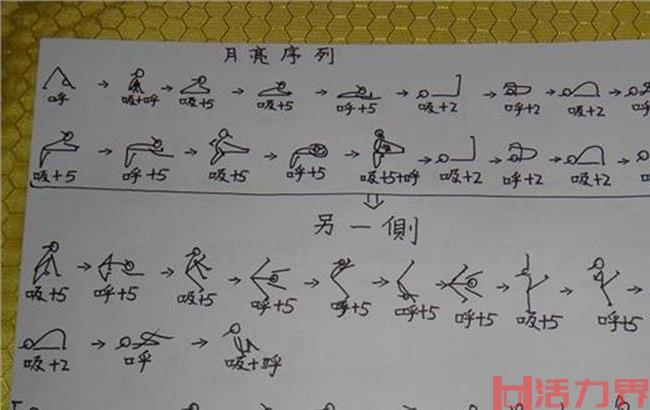 月亮序列
呼 → 吸+呼 → 吸+5 → 吸+5 → 呼+5 → 吸+2 → 呼+2 → 吸+2 → 呼
吸+5 → 呼+5 → 吸+5 → 呼+5 → 吸+5+呼 → 吸+2 → 呼+2 → 吸+2 →
另一側
吸+5 → 呼+5 → 吸+5 → 呼+5 → 呼+5 → 呼+5 → 呼+5 → 吸+5 → 呼+5 →
吸+2 → 呼 → 吸+呼
活力界